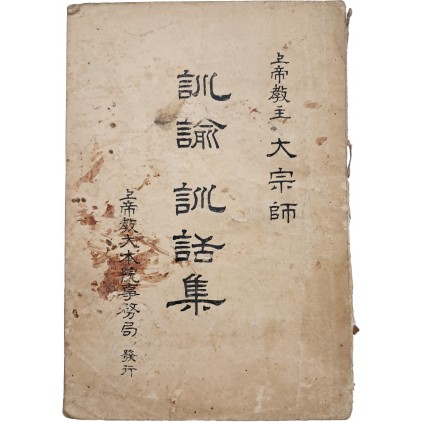 上帝教主 大宗師
訓諭 訓話集
上帝教大本院事務局 發行